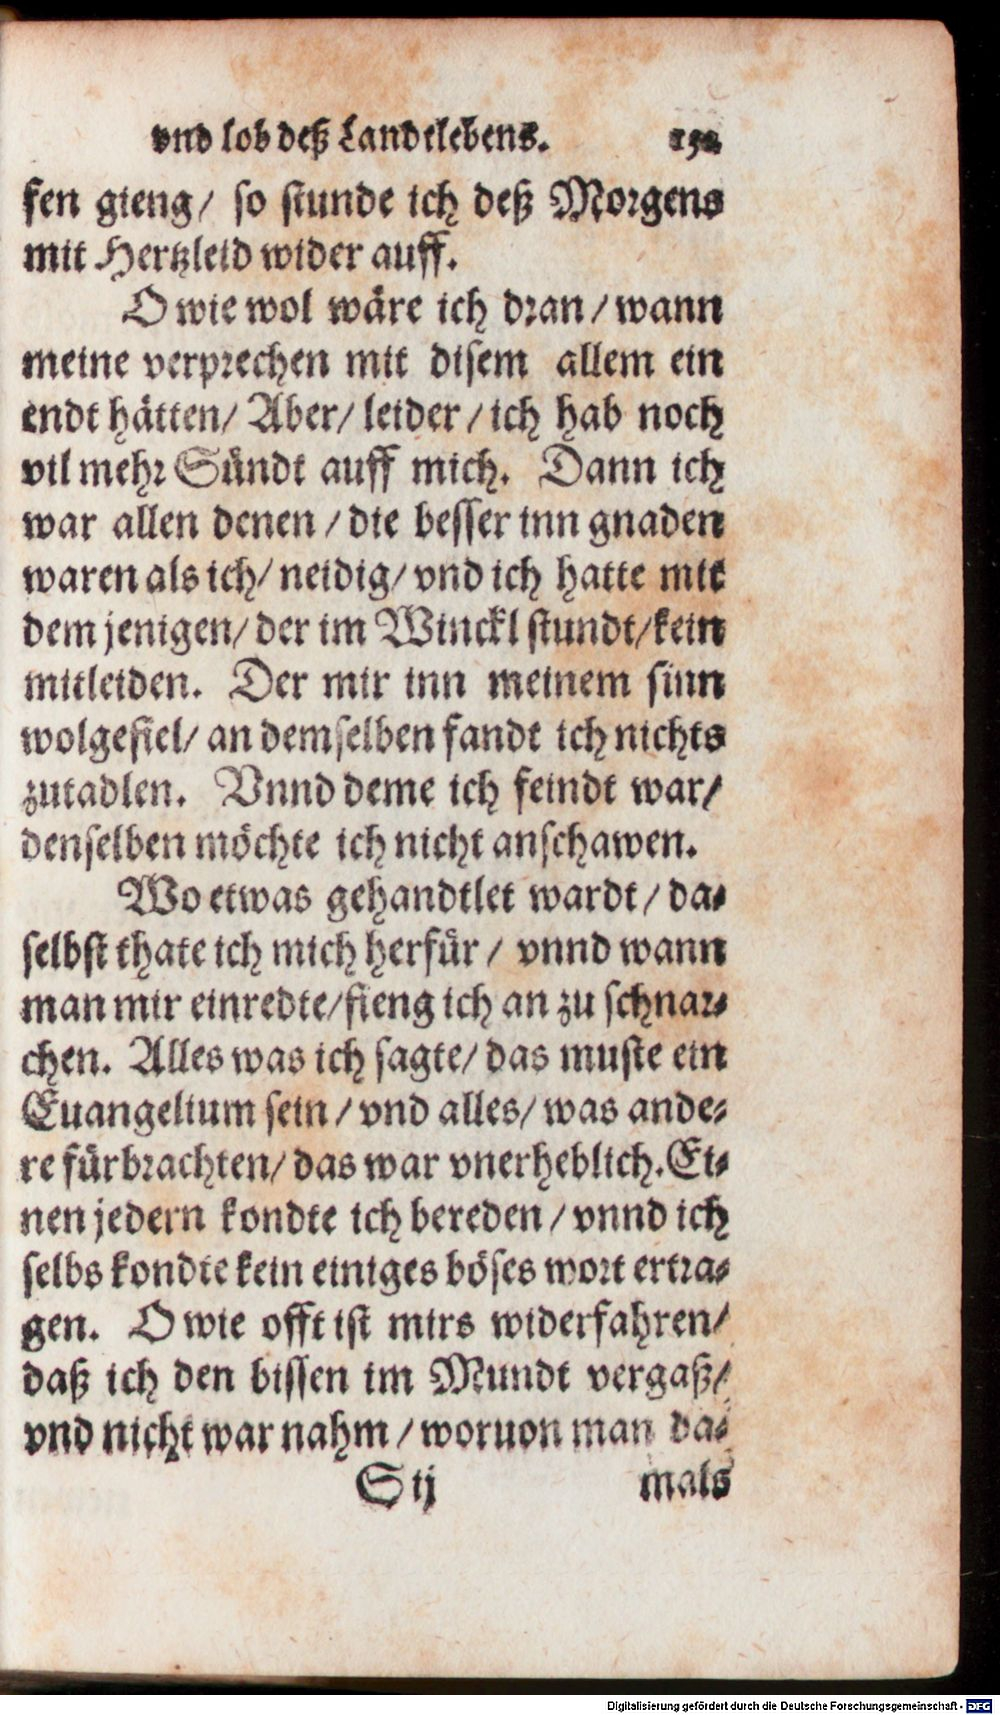 vnd lob deß Landtlebens.
fen gieng/ so stunde ich deß Morgens
mit Hertzleid wider auff.
O wie wol wäre ich dran/ wann
meine verprechen mit disem allem ein
endt hätten/ Aber/ leider/ ich hab noch
vil mehr Sündt auff mich. Dann ich
war allen denen/ die besser inn gnaden
waren als ich/ neidig/ vnd ich hatte mit
dem jenigen/ der im Winckl stundt/ kein
mitleiden. Der mir inn meinem sinn
wolgefiel/ an demselben fandt ich nichts
zutadlen. Vnnd deme ich feindt war/
denselben möchte ich nicht anschawen.
Wo etwas gehandtlet wardt/ da-
selbst thate ich mich herfür/ vnnd wann
man mir einredte/ fieng ich an zu schnar-
chen. Alles was ich sagte/ das muste ein
Euangelium sein/ vnd alles/ was ande-
re fürbrachten/ das war vnerheblich. Ei-
nen jedern kondte ich bereden/ vnnd ich
selbs kondte kein einiges böses wort ertra-
gen. O wie offt ist mirs widerfahren/
daß ich den bissen im Mundt vergaß/
vnd nicht war nahm/ woruon man da-
S ij mals
Digitalisierung gefördert durch die Deutsche Forschungsgemeinschaft - DFG